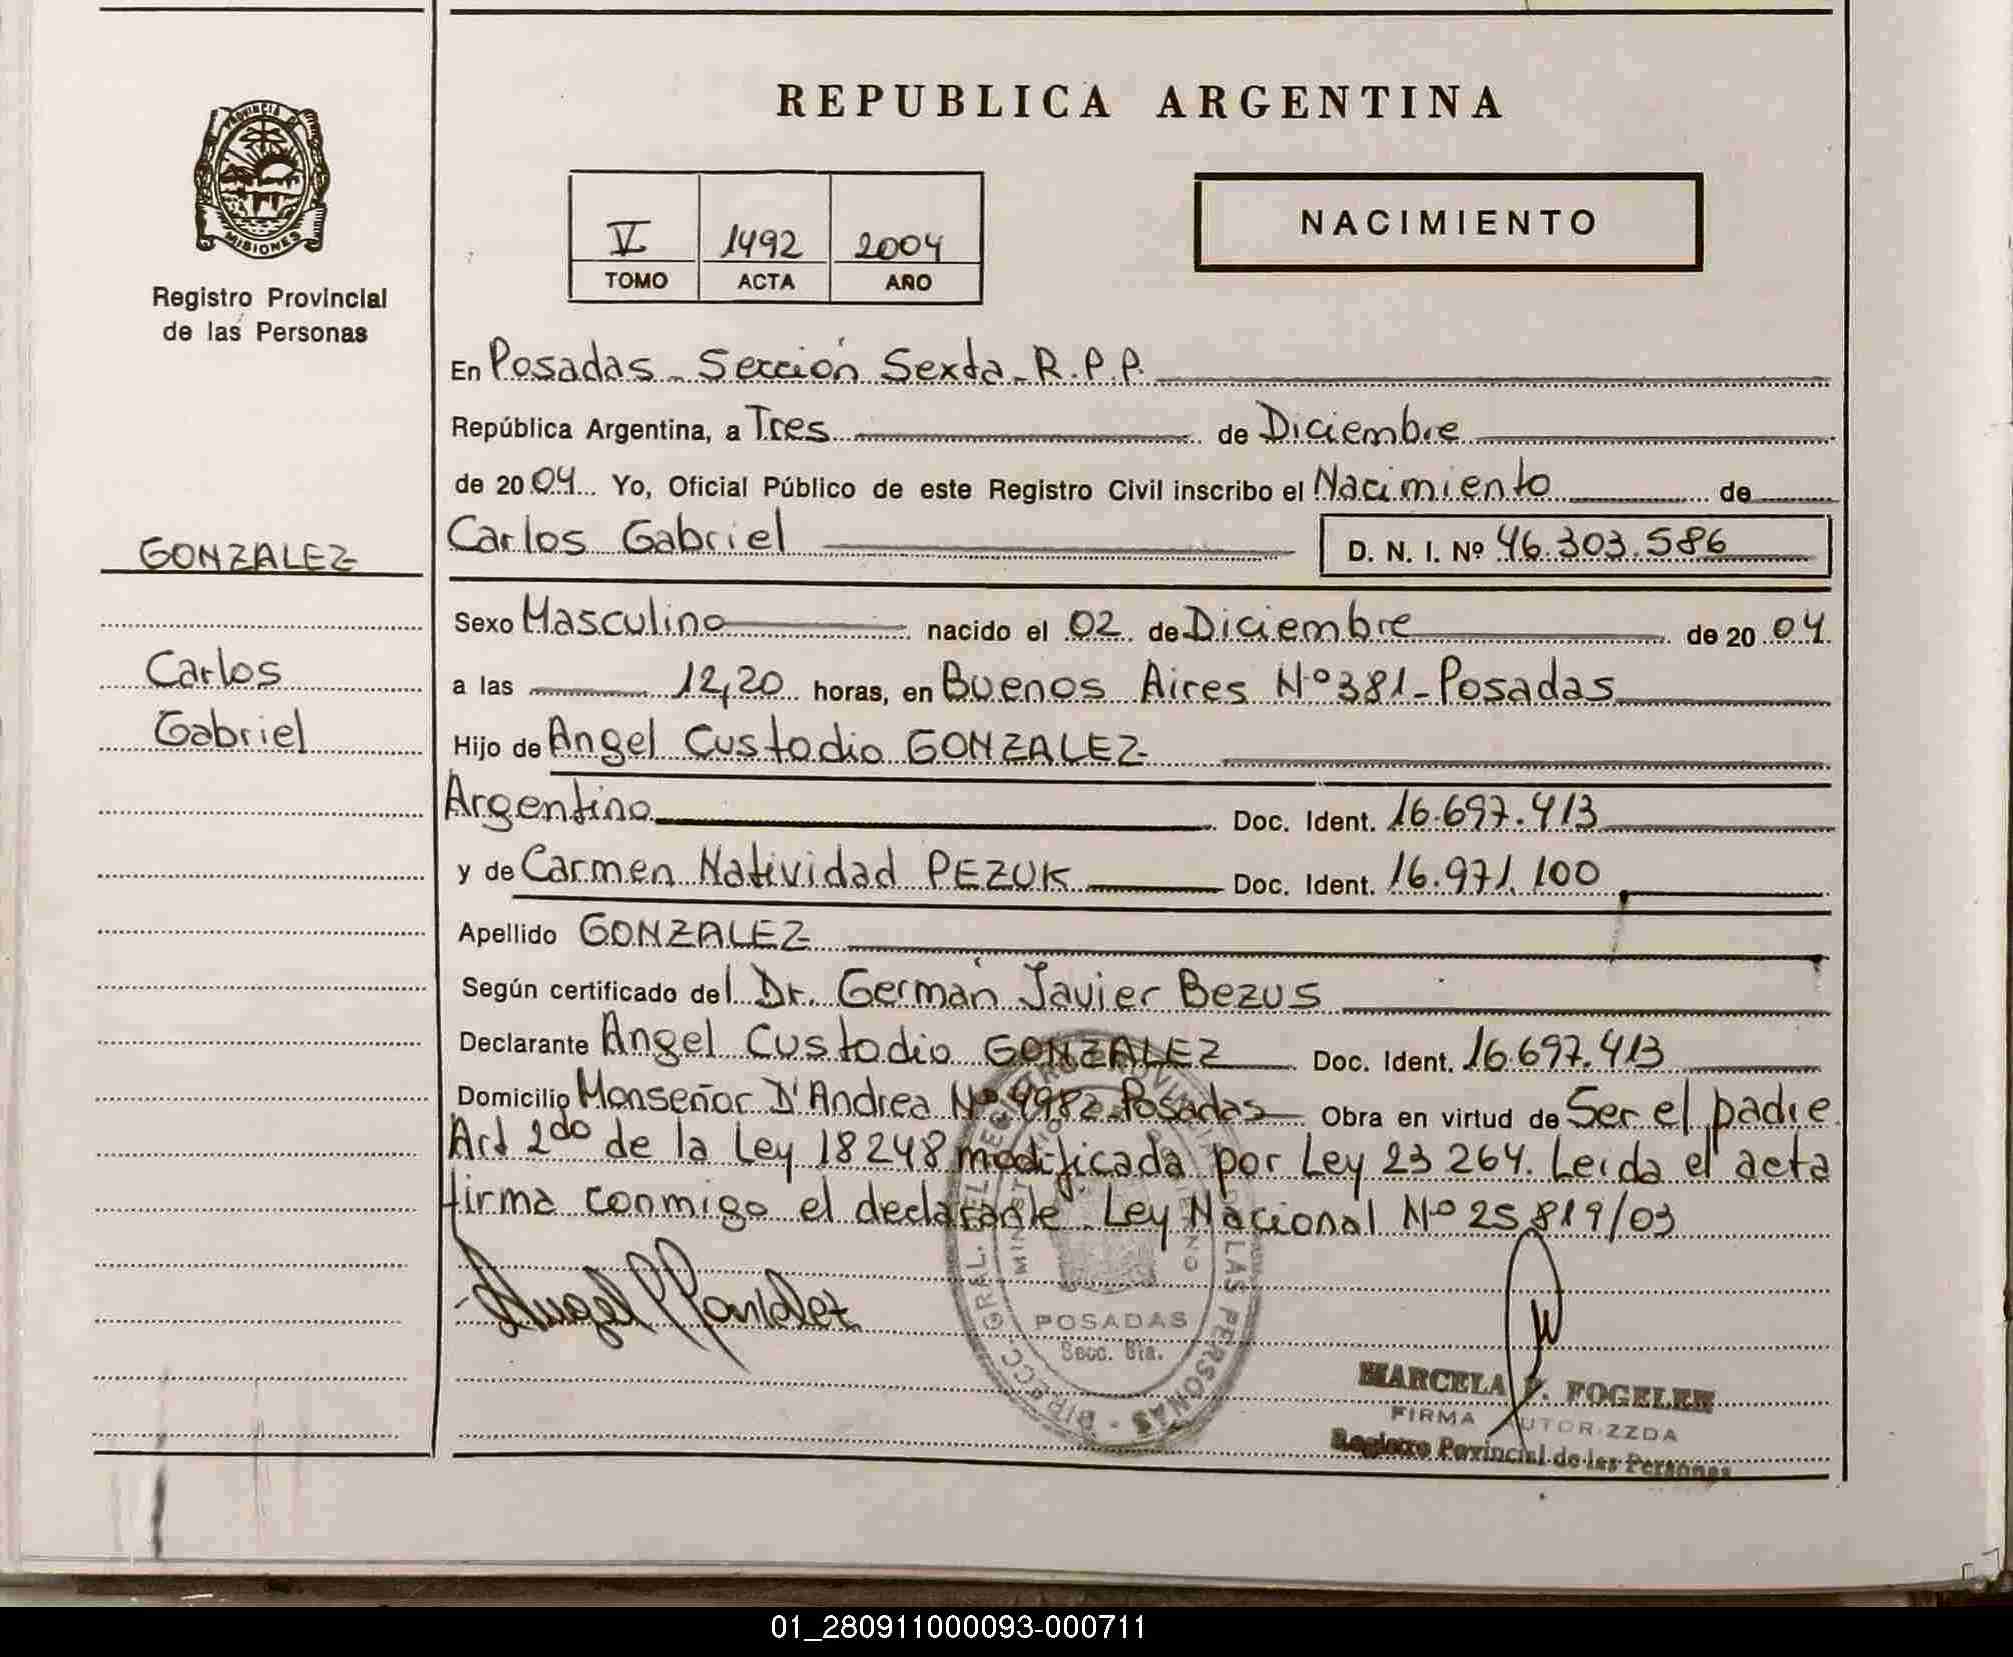 REPUBLICA ARGENTINA
PROVINCIA D MISIONES
Registro Provincial
de las Personas
V 1492 2004
TOMO ACTA AÑO
NACIMIENTO
En Posadas - Sección Sexta - R.P.P.
República Argentina, a Tres de Diciembre
de 2004 Yo, Oficial Público de este Registro Civil inscribo el Nacimiento de
Carlos Gabriel D. N. I. Nº 46.303.586
GONZALEZ
Carlos
Gabriel
Sexo Masculino nacido el 02 de Diciembre de 2004
a las 12,20 horas, en Buenos Aires Nº 381 - Posadas
Hijo de Angel Custodio GONZALEZ
Argentino Doc. Ident. 16.697.413
y de Carmen Natividad PEZUK Doc. Ident. 16.971.100
Apellido GONZALEZ
Según certificado del Dr. Germán Javier Bezus
Declarante Angel Custodio GONZALEZ Doc. Ident. 16.697.413
Domicilio Monseñor D'Andrea Nº 9982 - Posadas Obra en virtud de Ser el padre
Art 2do de la Ley 18248 modificada por Ley 23 264. Leida el acta
firma conmigo el declarante. Ley Nacional Nº 25 819/03
Angel Gonzalez
POSADAS
Secc. 6ta.
MARCELA F. FOGELER
FIRMA AUTORIZZDA
Registro Povincial de las Personas
01_280911000093-000711